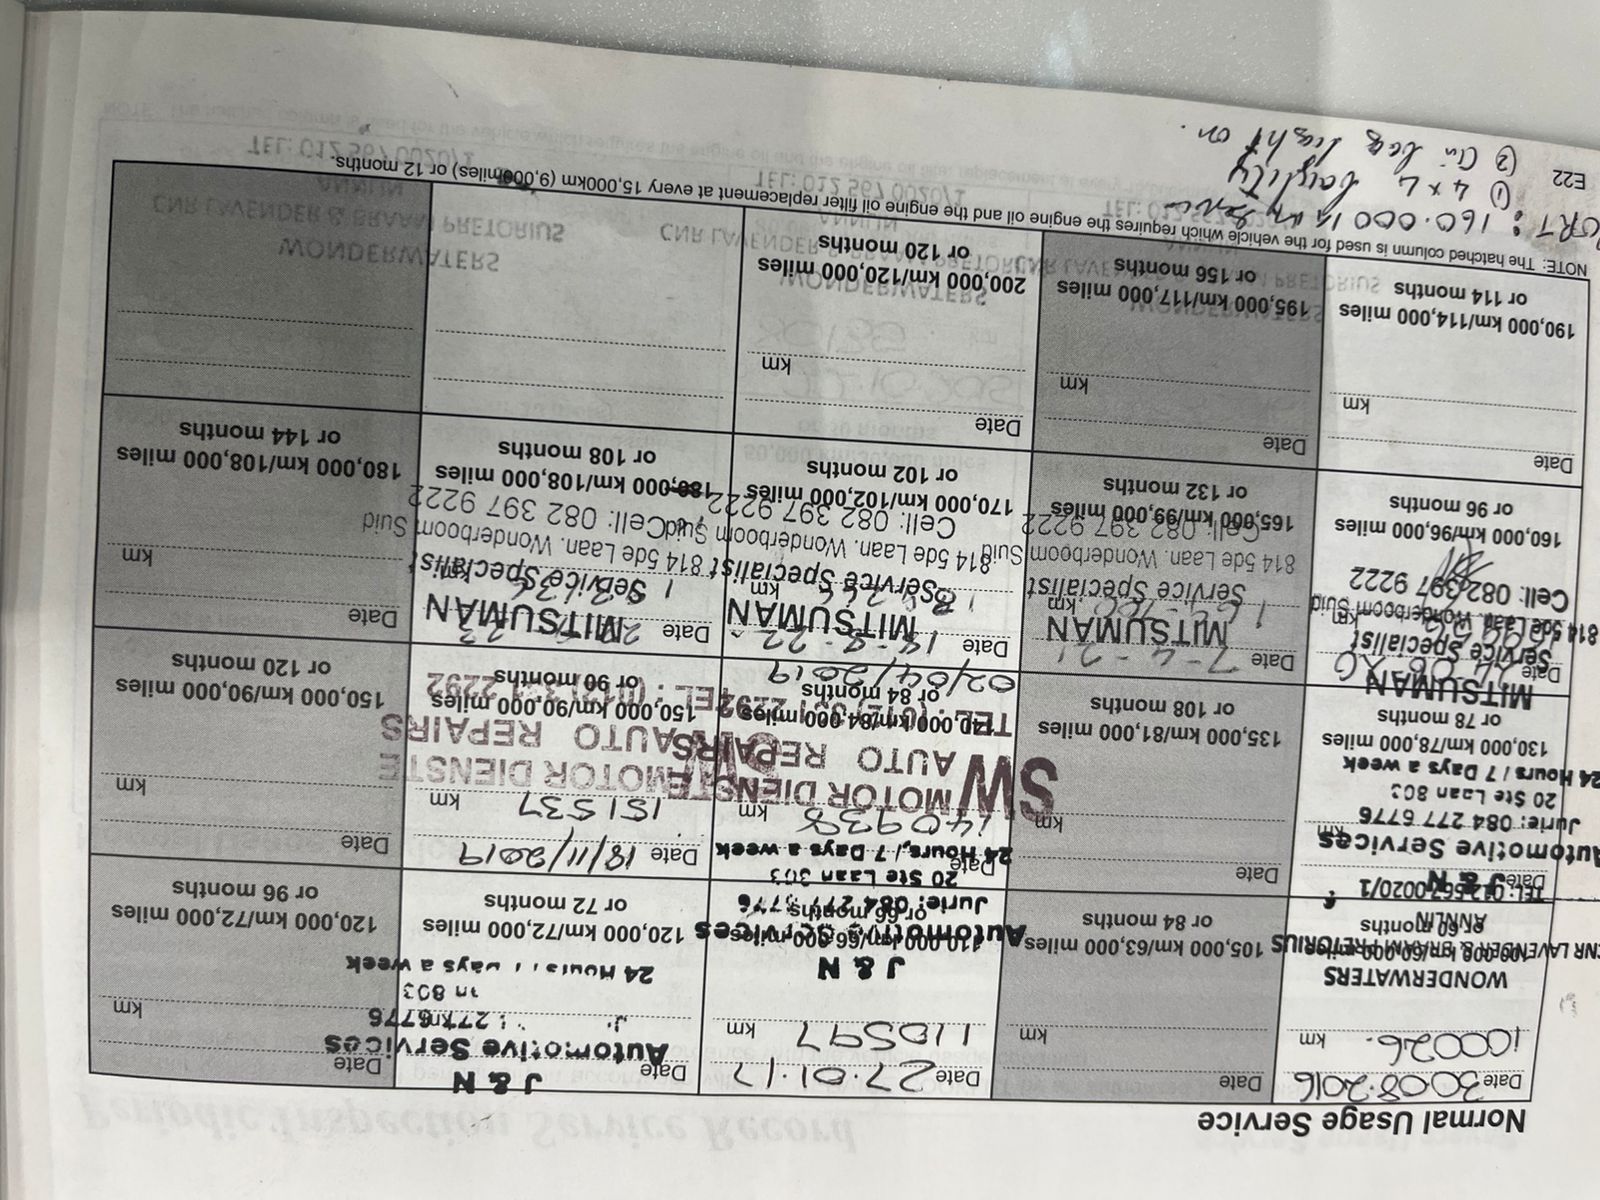 Normal Usage Service
Date 30.08.2016
100026. km
WONDERWATERS
CNR LAVENDER & BRAAM PRETORIUS
100,000 km/60,000 miles
or 60 months
ANNLIN
TEL: 012 567 0020/1
Date
km
105,000 km/63,000 miles
or 84 months
Date 27.01.17
110597 km
J & N
Automotive Services
110,000 km/66,000 miles
or 66 months
Jurie: 084 277 6776
20 Ste Laan 803
24 Hours / 7 Days a week
Date
J & N
Automotive Services
km
24 Hours / 7 Days a week
120,000 km/72,000 miles
or 72 months
Date
km
120,000 km/72,000 miles
or 96 months
Date
J & N
Automotive Services
Jurie: 084 277 6776
km
20 Ste Laan 803
24 Hours / 7 Days a week
130,000 km/78,000 miles
or 78 months
Date
km
135,000 km/81,000 miles
or 108 months
Date
140938 km
SW MOTOR DIENSTE
AUTO REPAIRS
140,000 km/84,000 miles
or 84 months
02/04/2019
Date 18/11/2019
151537 km
MOTOR DIENSTE
AUTO REPAIRS
150,000 km/90,000 miles
or 90 months
Date
km
150,000 km/90,000 miles
or 120 months
MITSUMAN
Date
Service Specialist
km
814 5de Laan. Wonderboom Suid
Cell: 082 397 9222
160,000 km/96,000 miles
or 96 months
Date 7-4-21
MITSUMAN
km
Service Specialist
814 5de Laan. Wonderboom Suid
Cell: 082 397 9222
165,000 km/99,000 miles
or 132 months
Date
MITSUMAN
km
Service Specialist
814 5de Laan. Wonderboom Suid
Cell: 082 397 9222
170,000 km/102,000 miles
or 102 months
Date
MITSUMAN
km
Service Specialist
814 5de Laan. Wonderboom Suid
Cell: 082 397 9222
180,000 km/108,000 miles
or 108 months
Date
km
180,000 km/108,000 miles
or 144 months
Date
km
190,000 km/114,000 miles
or 114 months
Date
km
195,000 km/117,000 miles
or 156 months
Date
km
200,000 km/120,000 miles
or 120 months
NOTE: The hatched column is used for the vehicle which requires the engine oil and the engine oil filter replacement at every 15,000km (9,000miles) or 12 months.
160.000
① 4x4
② light on.
E22